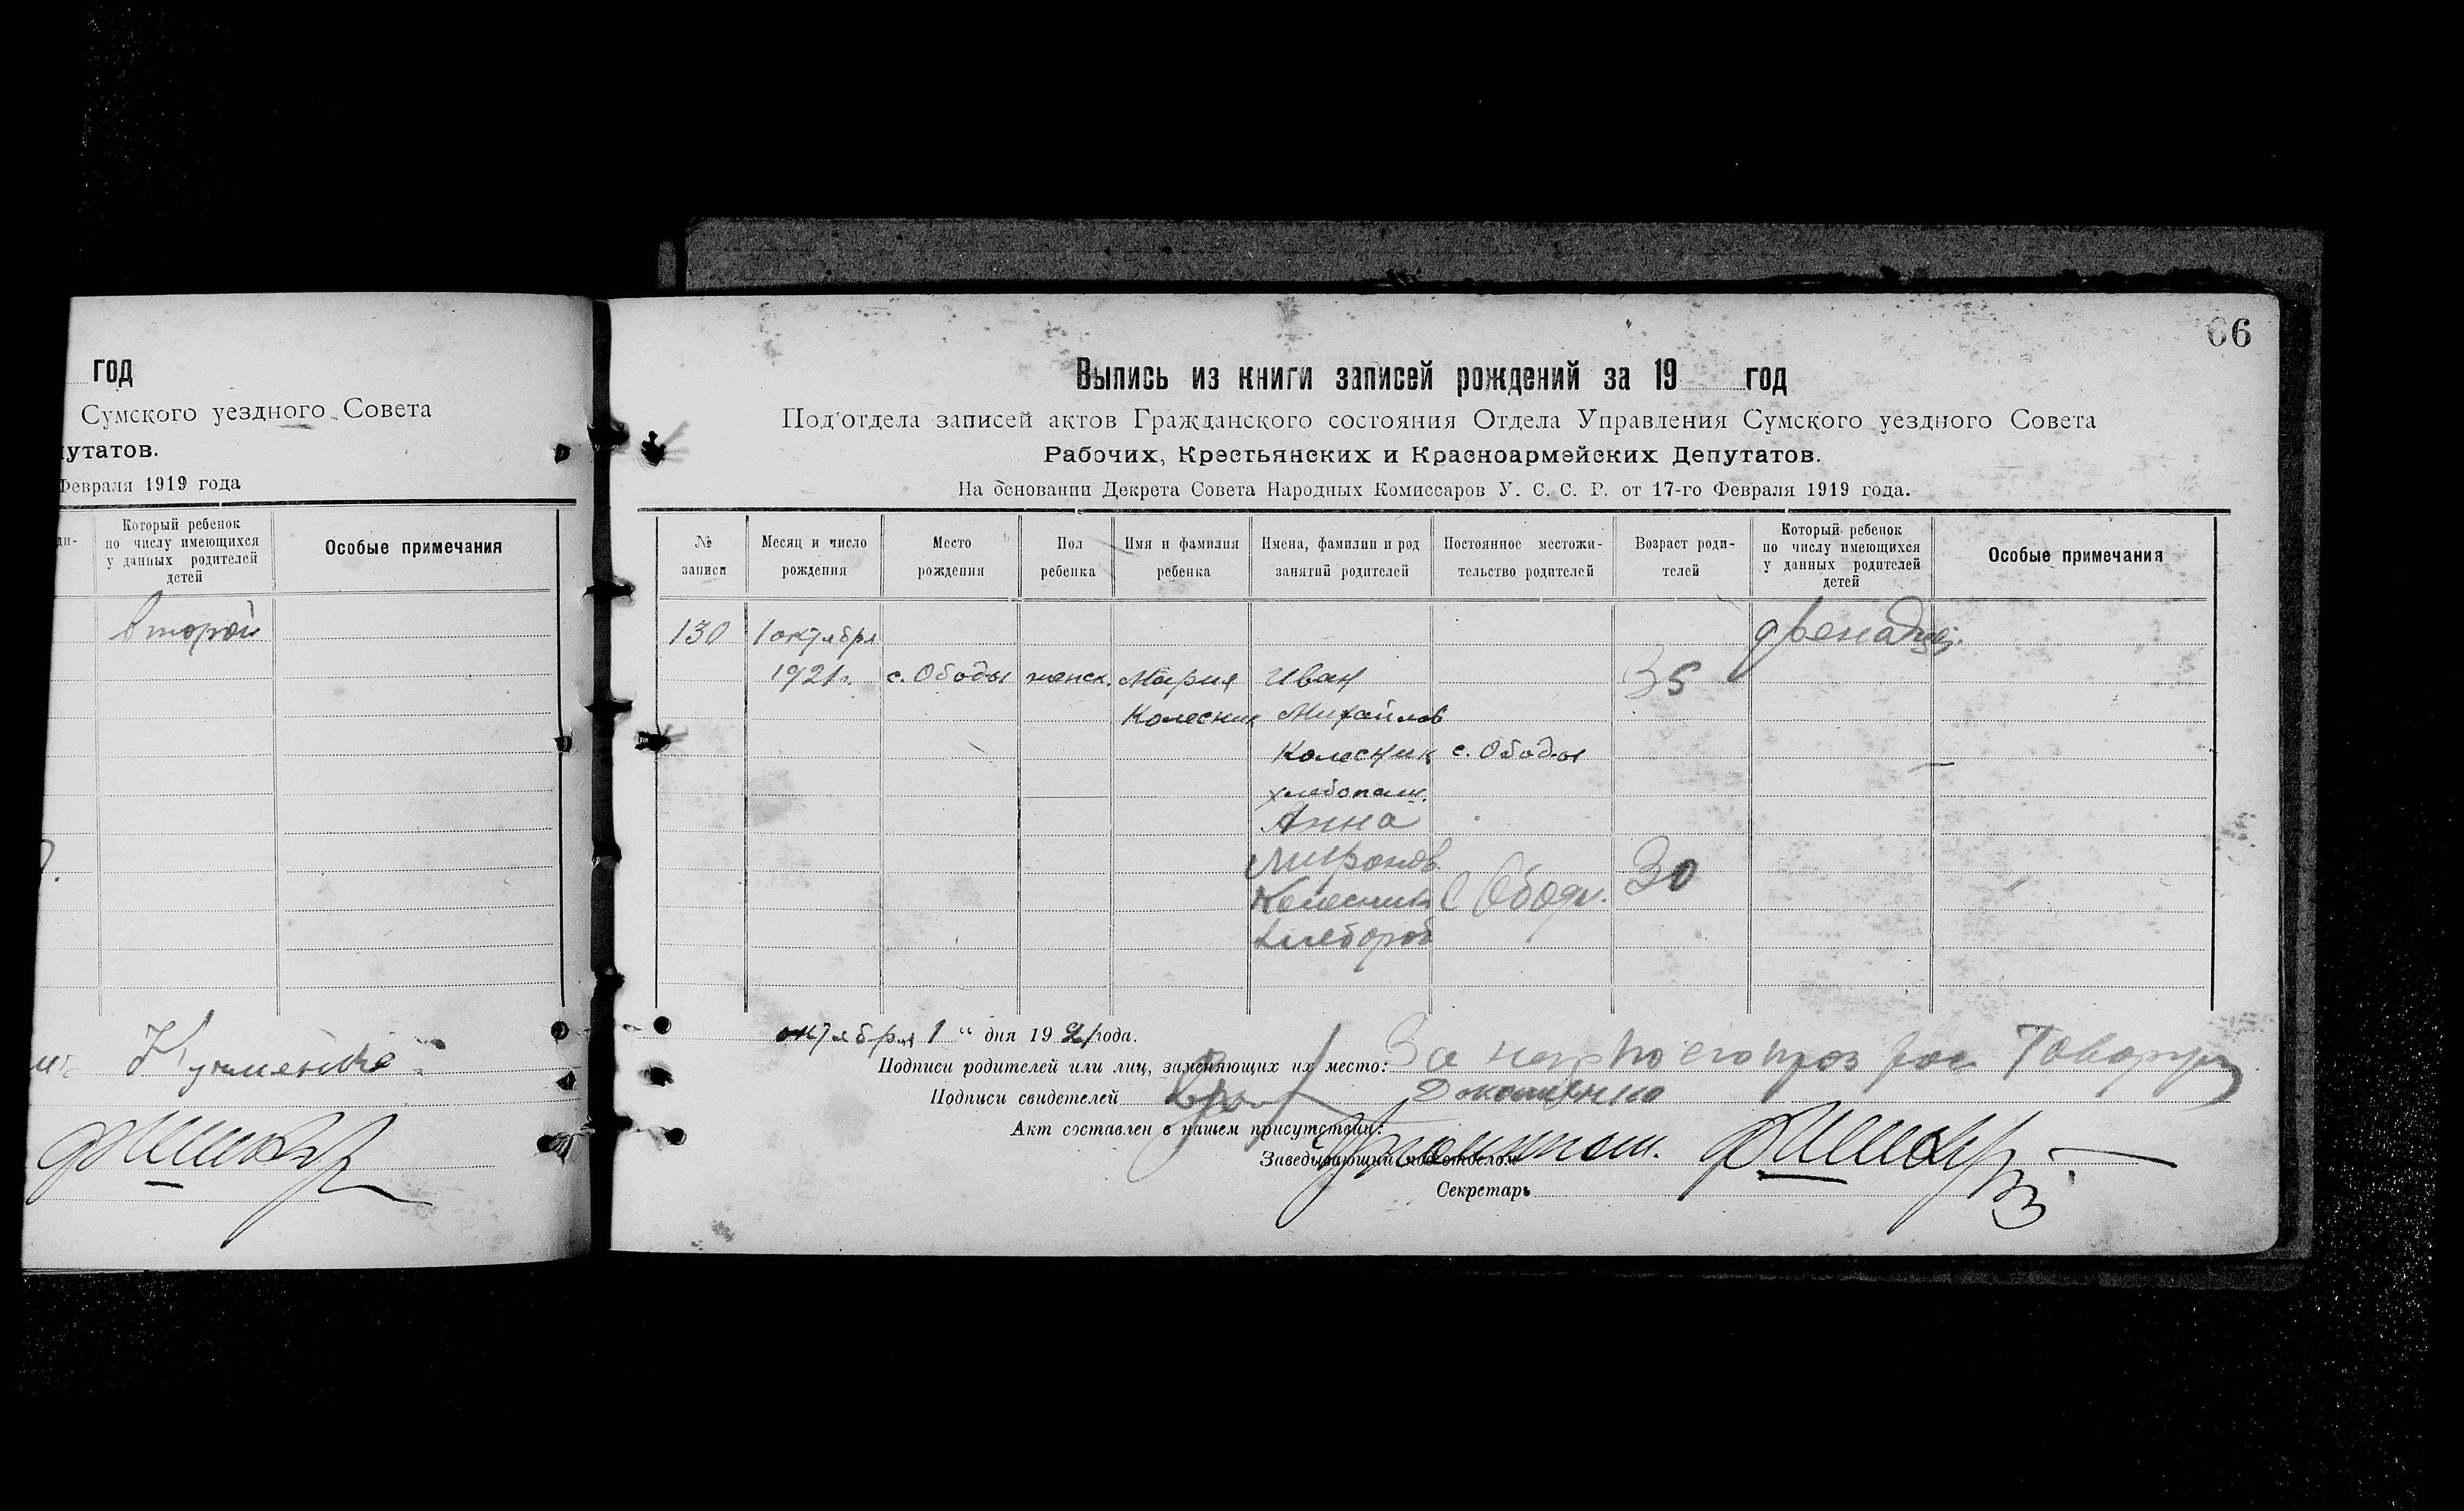 год
Сумского уездного Совета
путатов.
Февраля 1919 года
ди-
Который ребенок
по числу имеющихся
у данных родителей
детей
Особые примечания
второй
Кучменко
66
Выпись из книги записей рождений за 19 год
Под'отдела записей актов Гражданского состояния Отдела Управления Сумского уездного Совета
Рабочих, Крестьянских и Красноармейских Депутатов.
На основании Декрета Совета Народных Комиссаров У. С. С. Р. от 17-го Февраля 1919 года.
№ записи
Месяц и число рождения
Место рождения
Пол ребенка
Имя и фамилия ребенка
Имена, фамилии и род занятий родителей
Постоянное местожи-тельство родителей
Возраст роди-телей
Который ребенок по числу имеющихся у данных родителей детей
Особые примечания
130 1 октября
1921 г. с. Ободы женск. Мария Иван 35
Колесник Михайлов
Колесник с. Ободы
хлебопаш.
Анна
Миронов
Колесник с Ободы. 30
хлебороб
октября 1 " дня 1921 года.
Подписи родителей или лиц, заменяющих их место: За
Подписи свидетелей
Акт составлен в нашем присутствии:
Заведывающий под'отделом
Секретарь